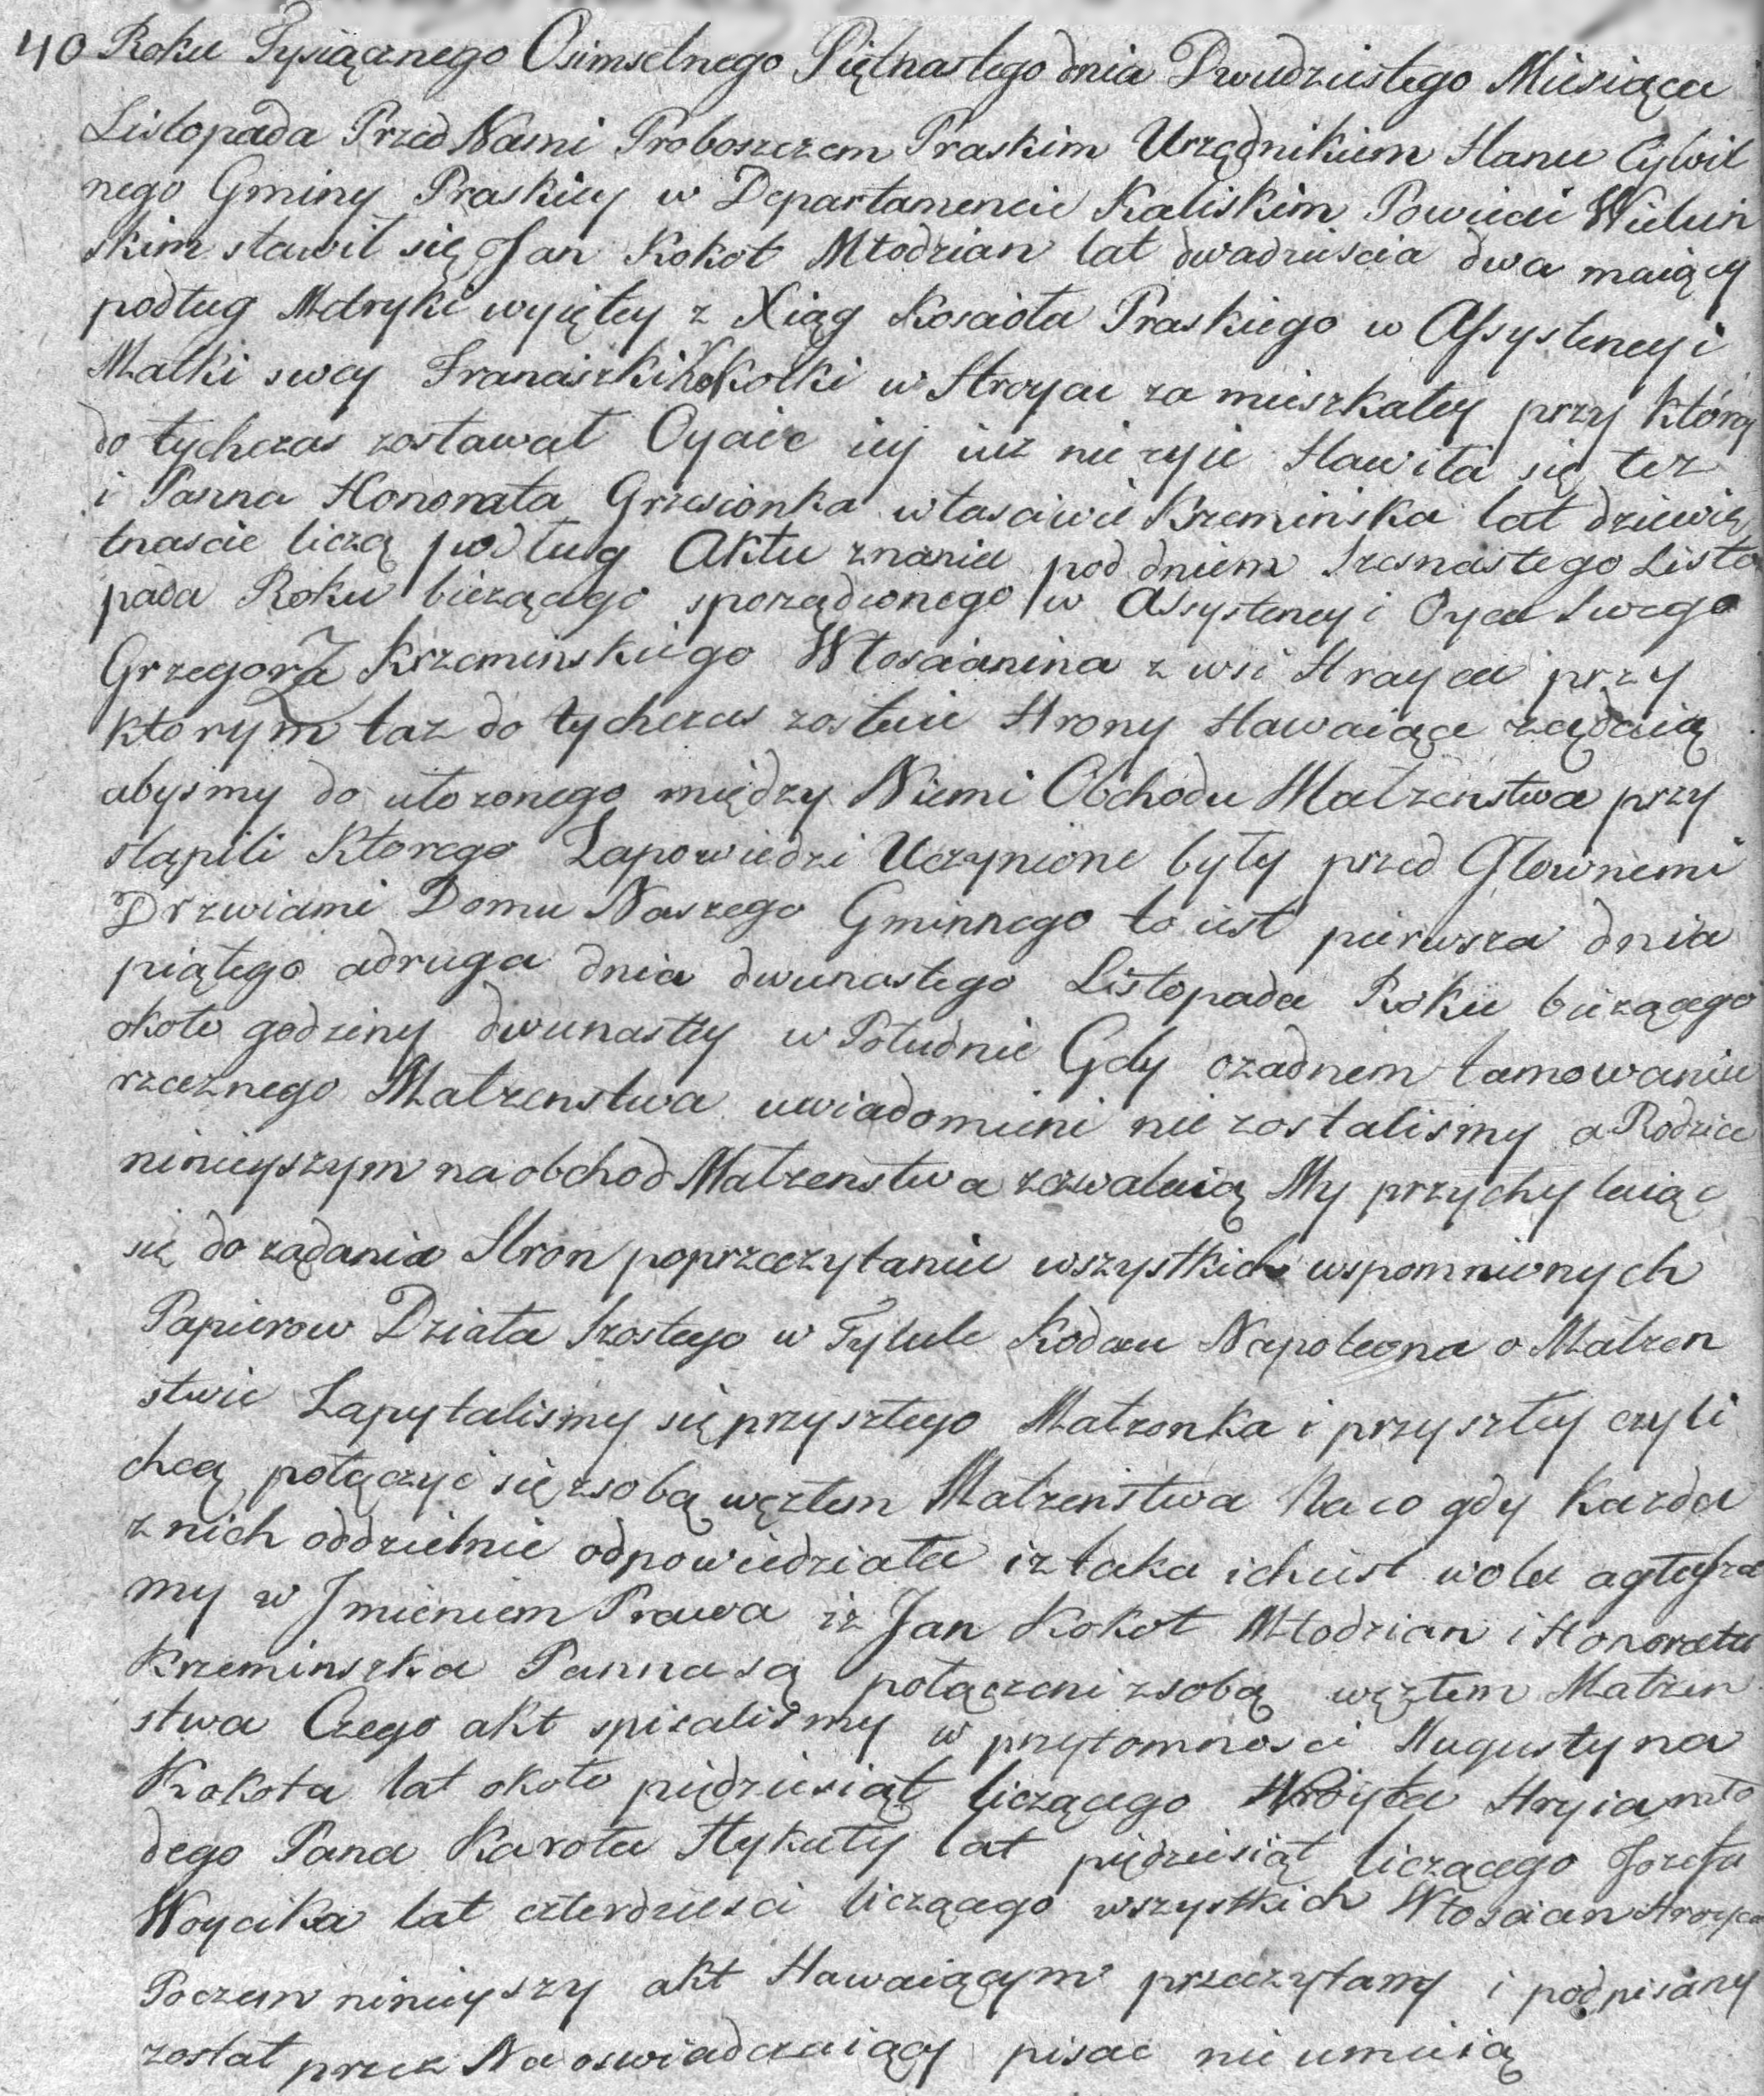 40 Roku Tysiącznego Osimsetnego Piętnastego dnia Dwudziestego Miesiąca
Listopada Przed Nami Proboszczem Praskim Urzędnikiem Stanu Cywil
nego Gminy Praskiey w Departamencie Kaliskim Powiecie Wieluń
skim stawił się Jan Kokot Młodzian lat dwadzieścia dwa maiący
podług Metryki wyiętey z Xiąg Koscioła Praskiego w Assystencyi
Matki swey Franciszki Kokotki w Stroycu zamieszkałey przy którey
do tychczas zostawał Oyciec iey iuz nie zyie Stawiła się też
i Panna Honorata Grzesionka własciwie Krzeminska lat dziewię
tnascie liczą podług Aktu znania pod dniem Szesnastego Listo
pada Roku bieżącego sporządzonego w Assystencyi Oyca Swego
Grzegorza Krzeminskiego Włoscianina z wsi Stroyca przy
ktorym taz do tychczas zostaie Strony stawaiące ządaią
abysmy do ułozonego między Niemi Obchodu Małzenstwa przy
stąpili Ktorego Zapowiedzi Uczynione były przed Głownemi
Drzwiami Domu Naszego Gminnego to iest pierwsza dnia
piątego a druga dnia dwunastego Listopada Roku bieżącego
około godziny dwunastey w Południe Gdy ozadnem tamowaniu
rzecznego Małzenstwa uwiadomieni nie zostalismy a Rodzice
ninieyszym na obchod Małzenstwa zezwalaią My przychylaiąc
się do ządania Stron poprzeczytaniu wszystkich wspomnionych
Papierow Działu Szostego w Tytule Kodexu Napoleona o Małzen
stwie Zapytalismy się przyszłego Małzonka i przyszłey czyli
chcą połączyć się zsobą węzłem Małzenstwa Na co gdy kazda
z nich oddzielnie odpowiedziała iz taka ich iest wola ogłasza
my w Jmieniem Prawa iz Jan Kokot Młodzian i Honorata
Krzeminszka Panna są połączeni zsobą węzłem Małzen
stwa Czego akt spisalismy w przytomnosci Augustyna
Kokota lat około pięдziesiąt liczącego Woyta Stryia mło
dego Pana Karola Stykuły lat pięдziesiąt liczącego Jozefa
Woycika lat czterdziesci liczącego wszystkich Włoscian Stroyca
Poczem ninieyszy akt Stawaiącym przeczytany i podpisany
został przez Na oswiadczaiący pisac nie umieią